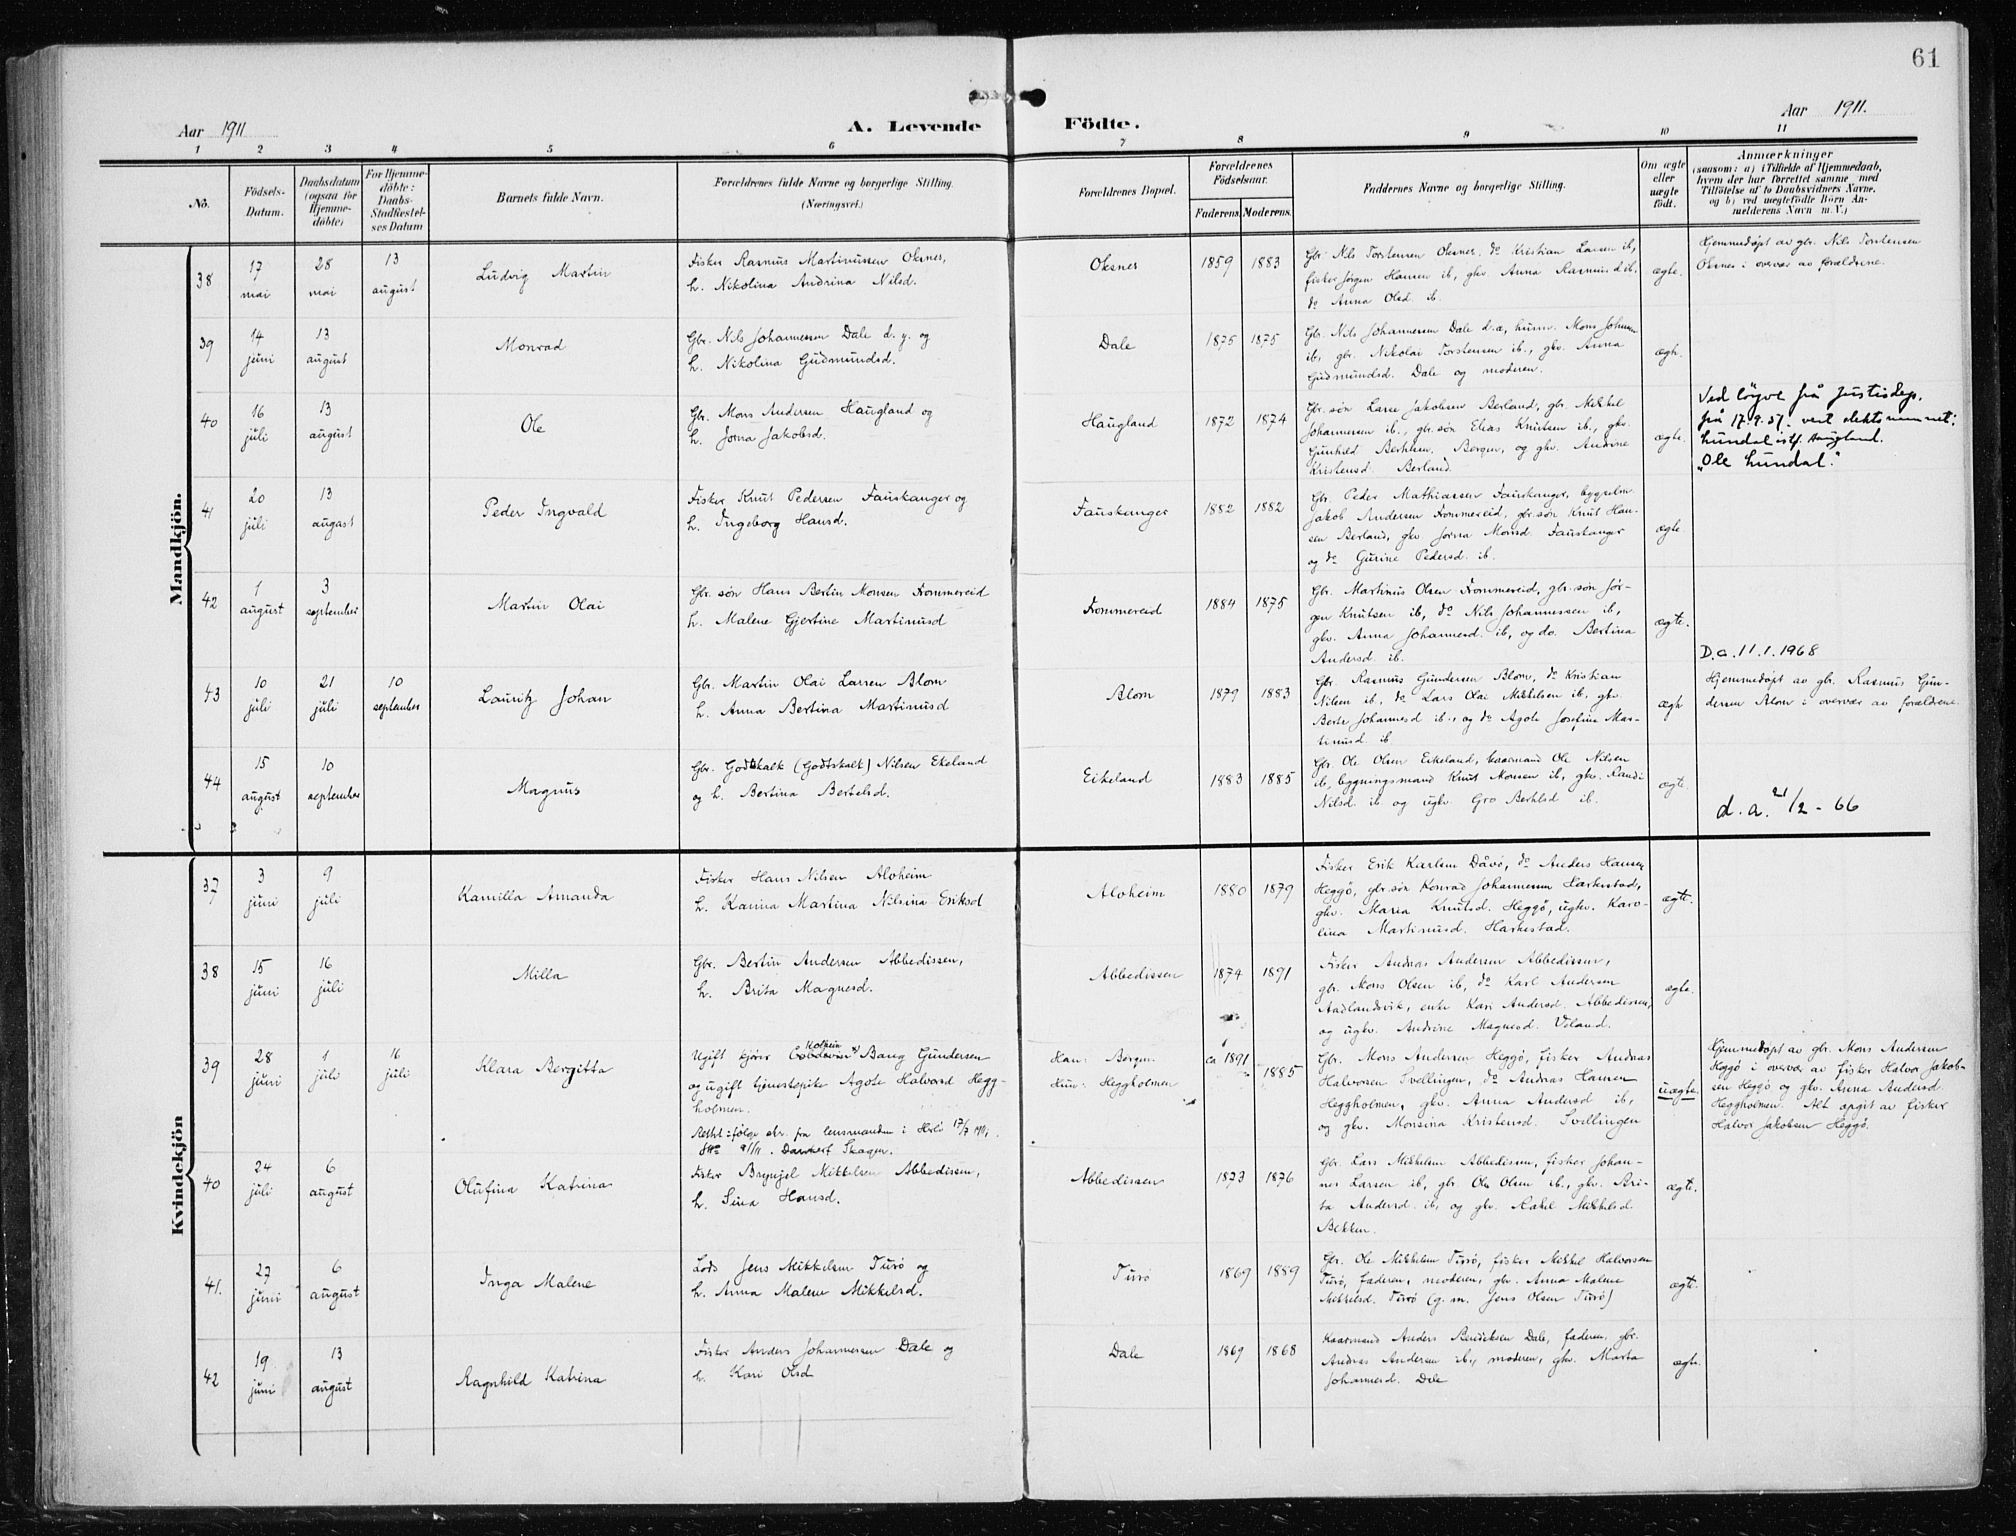 61
Aar 1911
A. Levende Födte.
Aar 1911.
1 2 3 4 5 6 7 8 9 10 11
No.
Födsels-
Datum.
Daabsdatum
(ogsaa for
Hjemme-
döbte)
For Hjemme-
döbte:
Daabs-
Stadfæstel-
ses Datum
Barnets fulde Navn.
Forældrenes fulde Navne og borgerlige Stilling.
(Næringsvei.)
Forældrenes Bopæl.
Forældrenes
Födselsaar.
Faderens. Moderens.
Faddernes Navne og borgerlige Stilling.
Om ægte
eller
uægte
födt.
Anmærkninger
(saasom: a) i Tilfælde af Hjemmedaab,
hvem der har forrettet samme med
Tilföielse af to Daabsvidners Navne,
og b) ved uægtefödte Börn An-
melderens Navn m. V.)
Mandkjön.
38
17
mai
28
mai
13
august
Ludvig Martin
Fisker Rasmus Martinussen Oksnes,
h. Nikolina Andrina Nilsd.
Oksnes
1859 1883
Gbr. Nils Torstensen Oksnes, do Kristian Larsen ib,
fisker Jørgen Hansen ib, gkv. Anna Rasmusd ib,
do Anna Olsd. ib.
ægte.
Hjemmedøpt av gbr. Nils Torstensen
Oksnes i overvær av forældrene.
39
14
juni
13
august
Monrad
Gbr. Nils Johannessen Dale d. y. og
h. Nikolina Gudmundsd.
Dale
1875 1875
Gbr. Nils Johannessen Dale d.æ, husm. Mons Johnsen
ib, gbr. Nikolai Torstensen ib., gkv. Anna
Gudmundsd. Dale og moderen.
ægte.
40
16
juli
13
august
Ole
Gbr. Mons Andersen Haugland og
h. Jorna Jakobsd.
Haugland
1872 1874
Gbr.søn Lars Jakobsen Berland, gbr. Mikkel
Johannesen ib., gbr.søn Elias Knutsen ib., gkv.
Gunhild Berthsen, Bergen, og gkv. Andrine
Kristensd. Berland.
ægte.
Ved løyve frå Justisdep.
frå 17.9.51. vert slektsnamnet:
Lundal istf. Haugland.
"Ole Lundal."
41
20
juli
13
august
Peder Ingvald
Fisker Knut Pedersen Fauskanger og
h. Ingeborg Hansd.
Fauskanger
1882 1882
Gbr. Peder Mathiassen Fauskanger, bygselm.
Jakob Andersen Frommereid, gbr.søn Knut Han-
sen Berland, gkv. Jorna Monsd. Fauskanger
og do Gurine Pedersd. ib.
ægte
42
1
august
3
september
Martin Olai
Gbr. søn Hans Bertin Monsen Frommereid
h. Malene Gjertine Martinusd
Frommereid
1884 1875
Gbr. Martinus Olsen Frommereid, gbr. søn Jør-
gen Knutsen ib, do Nils Johannessen ib,
gkv. Anna Johannesd. ib, og do. Bertina
Andersd. ib.
ægte.
D.a. 11.1.1968
43
10
juli
21
juli
10
september
Lauritz Johan
Gbr. Martin Olai Larsen Blom
h. Anna Bertina Martinusd
Blom
1879 1883
Gbr. Rasmus Gundersen Blom, do Kristian
Nilsen ib, do Lars Olai Mikkelsen ib, gkv.
Berte Johannesd ib., og do Agote Josefine Mar-
tinusd. ib
ægte
Hjemmedøpt av gbr. Rasmus Gun-
dersen Blom i overvær av forældrene.
44
15
august
10
september
Magnus
Gbr. Godskalk (Godtskalk) Nilsen Ekeland
og h. Bertina Bertelsd.
Eikeland
1883 1885
Gbr. Ole Olsen Eikeland, kaarmand Ole Nilsen
ib, bygningsmand Knut Monsen ib, gkv. Randi
Nilsd. ib og ugkv. Gro Berthsd ib.
ægte.
d. a. 21/2 - 66
Kvindekjön
37
3
juni
9
juli
Kamilla Amanda
Fisker Hans Nilsen Alvheim
h. Karina Martina Nilsina Eriksd
Alvheim
1880 1879
Fisker Erik Karlsen Dåvø, do Anders Hansen
Heggø, gbr.søn Konrad Johannesen Harkestad,
gkv. Maria Knutsd. Heggø, ugkv. Karo-
lina Martinusd. Harkestad.
ægte.
38
15
juni
16
juli
Milla
Gbr. Bertin Andersen Abbedissen,
h. Brita Magnesd.
Abbedissen
1874 1891
Fisker Andreas Andersen Abbedissen,
gbr. Mons Olsen ib, do Karl Andersen
Aadlandsvik, enke Kari Andersd. Abbedissen,
og ugkv. Andrine Magnesd. Veland.
ægte.
39
28
juni
1
juli
16
juli
Klara Bergitta
Ugift kjører Bang Gundersen
og ugift tjenestepike Agote Halvorsd Hegg-
holmen.
Rettet ifølge skr. fra lensmanden i Herlø 17/7 1911.
Han: Bergen.
Hun: Heggholmen
ca 1891 1885
Gbr. Mons Andersen Heggø, fisker Andreas
Halvorsen Svellingen, do Andreas Hansen
Heggholmen, gkv. Anna Andersd ib,
og gkv. Monsina Kristensd. Svellingen
uægte.
Hjemmedøpt av gbr. Mons Andersen
Heggø i overvær av fisker Halvor Jakob-
sen Heggø og gkv. Anna Andersd.
Heggholmen. Alt opgit av fisker
Halvor Jakobsen Heggø.
40
24
juli
6
august
Olufina Katrina
Fisker Brynjel Mikkelsen Abbedissen,
h. Sina Hansd.
Abbedissen
1873 1876
Gbr. Lars Mikkelsen Abbedissen, fisker Johan-
nes Larsen ib, gbr. Ole Olsen ib., gkv. Bri-
ta Andersd. ib, og gkv. Rakel Mikkelsd
Bekken.
ægte.
41.
27
juni
6
august
Inga Malene
Lods Jens Mikkelsen Turø og
h. Anna Malene Mikkelsd.
Turø
1869 1889
Gbr. Ole Mikkelsen Turø, fisker Mikkel Halvorsen
Turø, faderen, moderen, gkv. Anna Malene
Mikkelsd. Turø (g. m. Jens Olsen Turø)
ægte.
42
19
juni
13
august
Ragnhild Katrina
Fisker Anders Johannessen Dale og
h. Kari Olsd
Dale
1869 1868
Kaarmand Anders Bendiksen Dale, faderen, gbr.
Andreas Andersen ib., moderen, gkv. Marta
Johannesd. Dale
ægte.